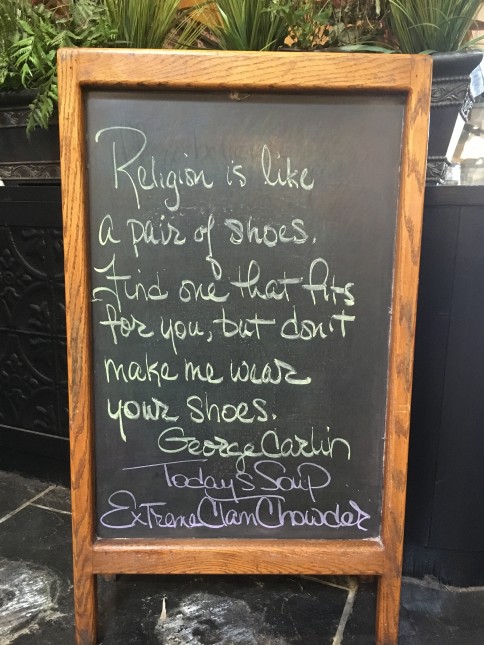 Religion is like
a pair of shoes.
Find one that fits
for you, but don't
make me wear
your shoes.
George Carlin
Today's Soup
Extreme Clam Chowder